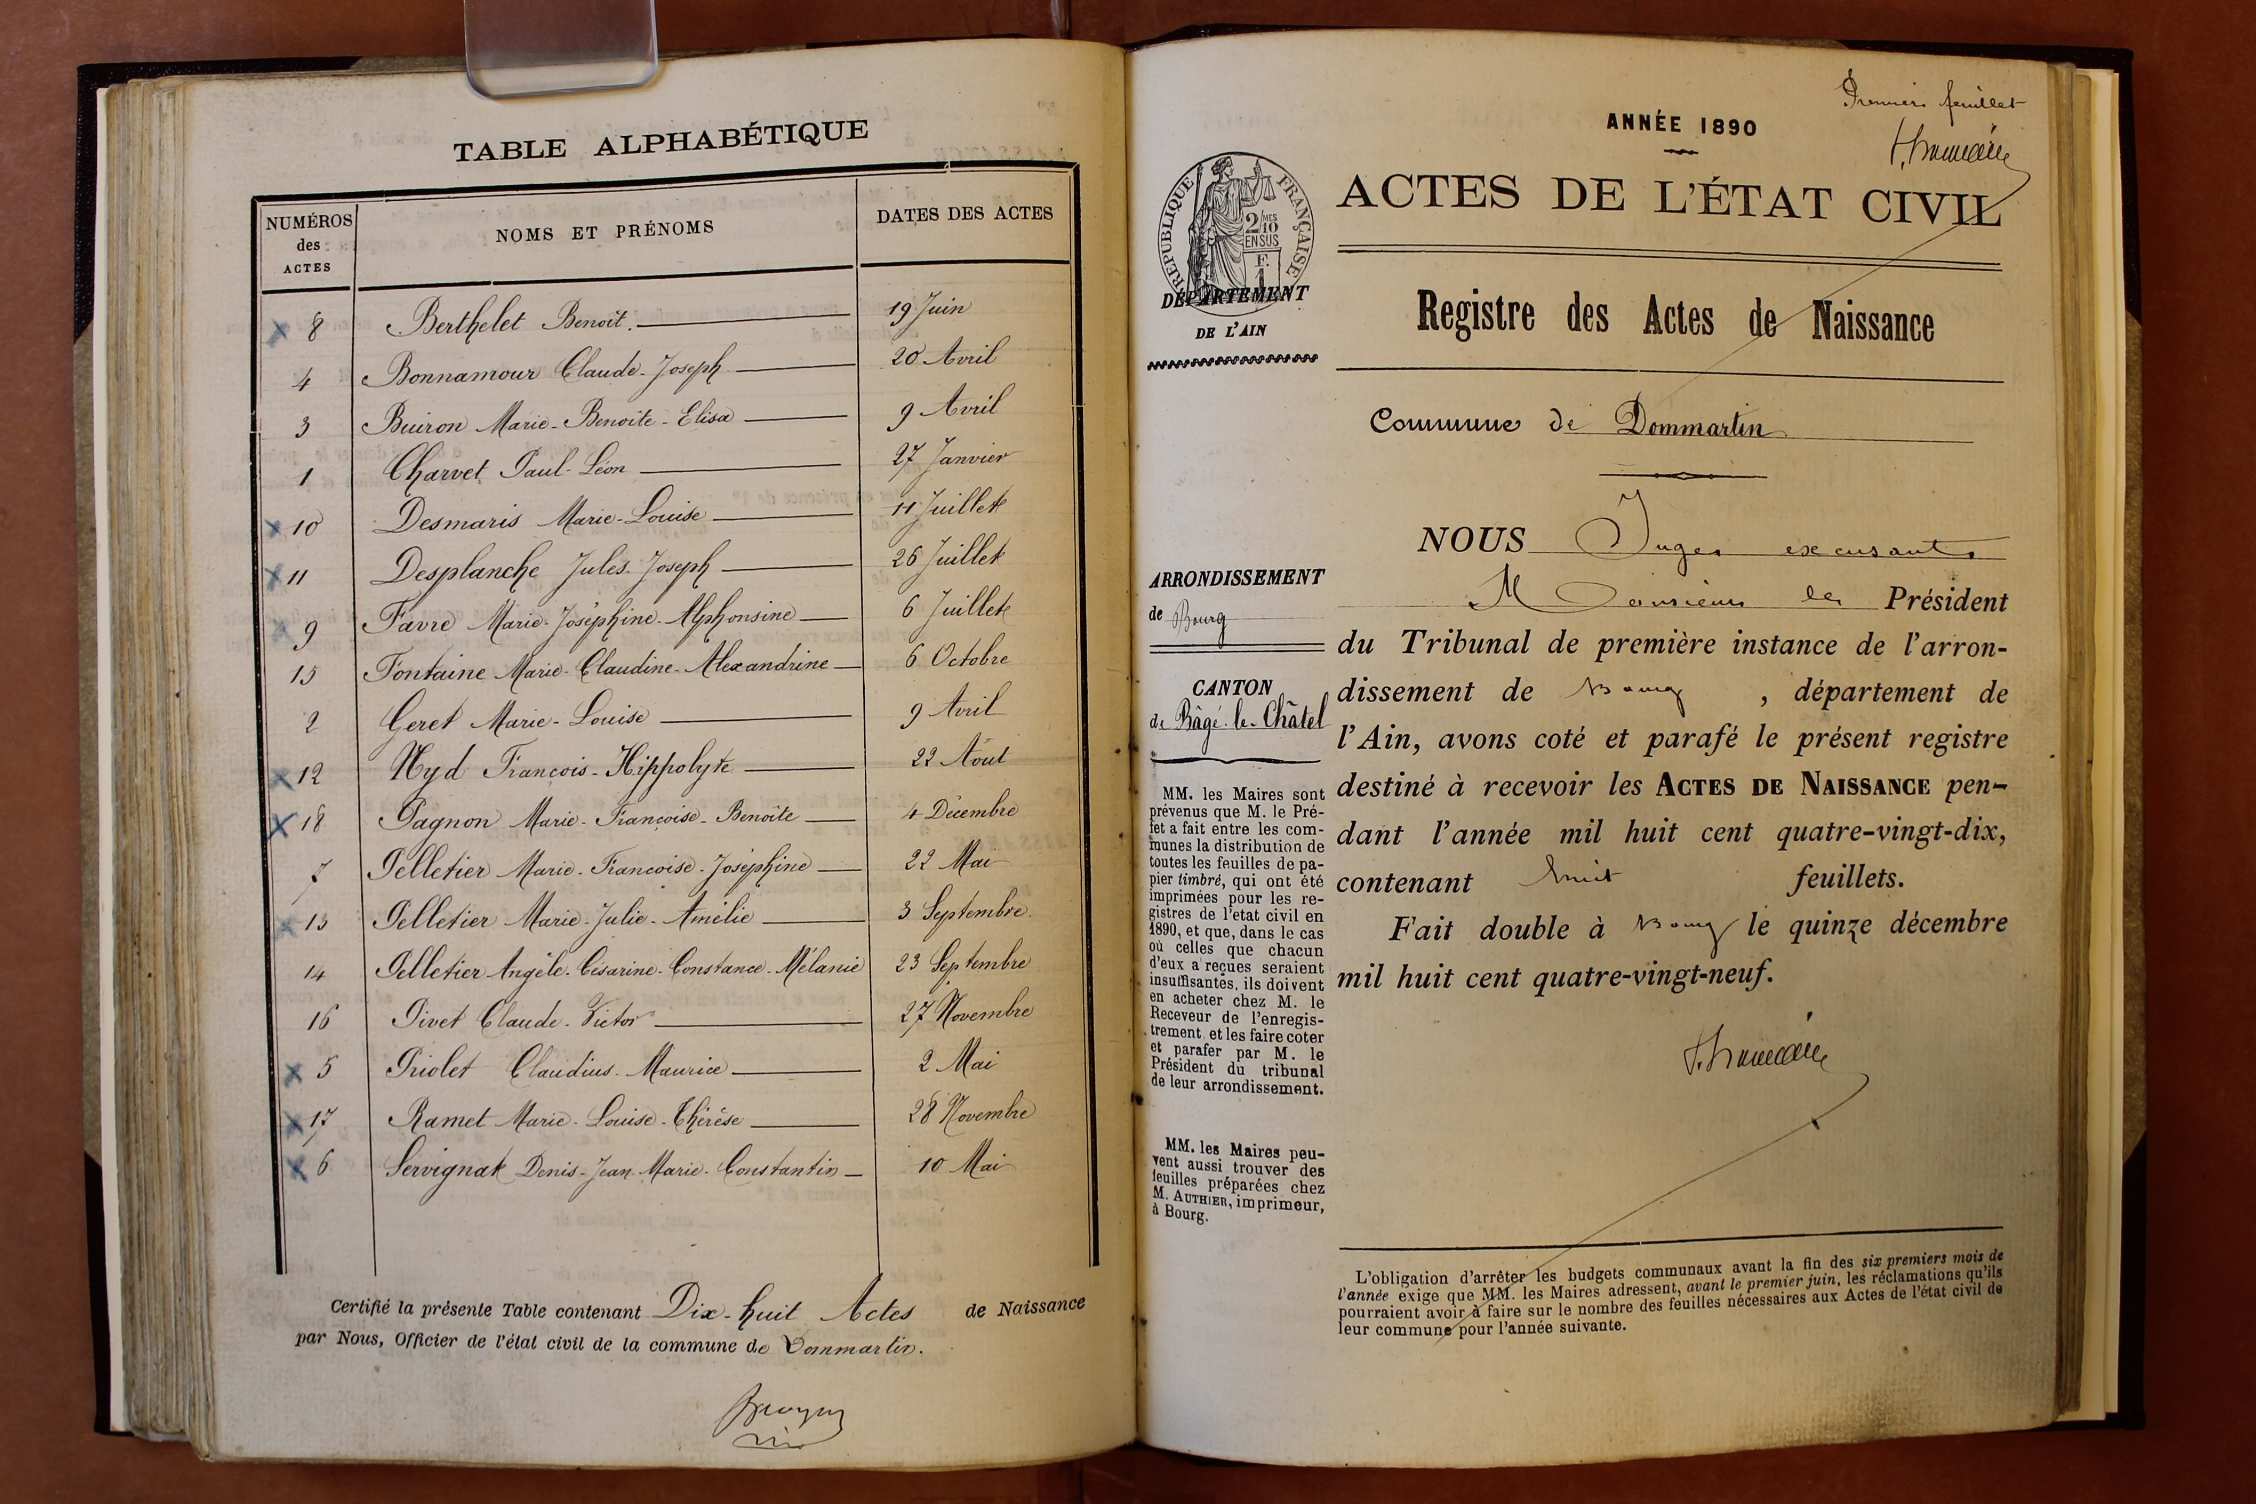 TABLE ALPHABÉTIQUE
NUMÉROS des ACTES NOMS ET PRÉNOMS DATES DES ACTES
8 Berthelet Benoît. 19 Juin
4 Bonnamour Claude-Joseph 20 Avril
3 Buiron Marie-Benoite-Elisa 9 Avril
1 Charvet Paul-Léon 27 Janvier
10 Desmaris Marie-Louise 11 Juillet
11 Desplanche Jules-Joseph 26 Juillet
9 Favre Marie-Joséphine-Alphonsine 6 Juillet
15 Fontaine Marie-Claudine-Alexandrine 6 Octobre
2 Geret Marie-Louise 9 Avril
12 Nyd François-Hippolyte 22 Août
18 Pagnon Marie-Françoise-Benoite 4 Décembre
7 Pelletier Marie-Francoise-Joséphine 22 Mai
13 Pelletier Marie-Julie-Amélie 3 Septembre
14 Pelletier Angèle-Césarine-Constance-Mélanie 23 Septembre
16 Pivet Claude-Victor 27 Novembre
5 Priolet Claudius-Maurice 2 Mai
17 Ramet Marie-Louise-Thérèse 28 Novembre
6 Servignat Denis-Jean-Marie-Constantin 10 Mai
Certifié la présente Table contenant Dix-huit Actes de Naissance
par Nous, Officier de l'état civil de la commune de Dommartin.
Premier feuillet
ANNÉE 1890
ACTES DE L'ÉTAT CIVIL
RÉPUBLIQUE FRANÇAISE
2/10 MES
EN SUS
F.
1
DÉPARTEMENT
DE L'AIN
Registre des Actes de Naissance
Commune de Dommartin
ARRONDISSEMENT
de Bourg
CANTON
de Bâgé-le-Châtel
MM. les Maires sont
prévenus que M. le Pré-
fet a fait entre les com-
munes la distribution de
toutes les feuilles de pa-
pier timbré, qui ont été
imprimées pour les re-
gistres de l'etat civil en
1890, et que, dans le cas
où celles que chacun
d'eux a reçues seraient
insuffisantes, ils doivent
en acheter chez M. le
Receveur de l'enregis-
trement et les faire coter
et parafer par M. le
Président du tribunal
de leur arrondissement.
MM. les Maires peu-
vent aussi trouver des
feuilles préparées chez
M. AUTHIER, imprimeur,
à Bourg.
NOUS Juge
Monsieur le Président
du Tribunal de première instance de l'arron-
dissement de Bourg, département de
l'Ain, avons coté et parafé le présent registre
destiné à recevoir les ACTES DE NAISSANCE pen-
dant l'année mil huit cent quatre-vingt-dix,
contenant huit feuillets.
Fait double à Bourg le quinze décembre
mil huit cent quatre-vingt-neuf.
L'obligation d'arrêter les budgets communaux avant la fin des six premiers mois de
l'année exige que MM. les Maires adressent, avant le premier juin, les réclamations qu'ils
pourraient avoir à faire sur le nombre des feuilles nécessaires aux Actes de l'état civil de
leur commune pour l'année suivante.